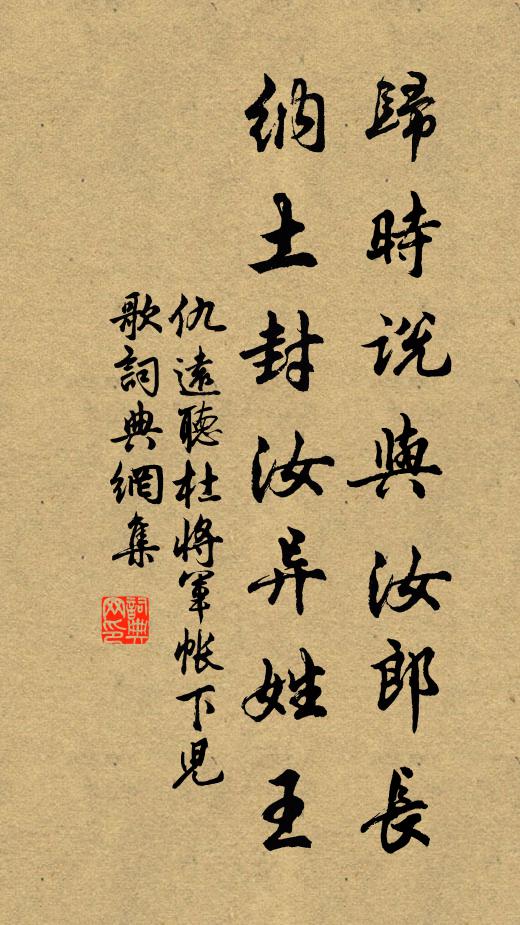 歸時説與汝郎長
納土封汝异姓王
仇遠聽杜將軍帳下兒
歌詞典網集
詞典网印